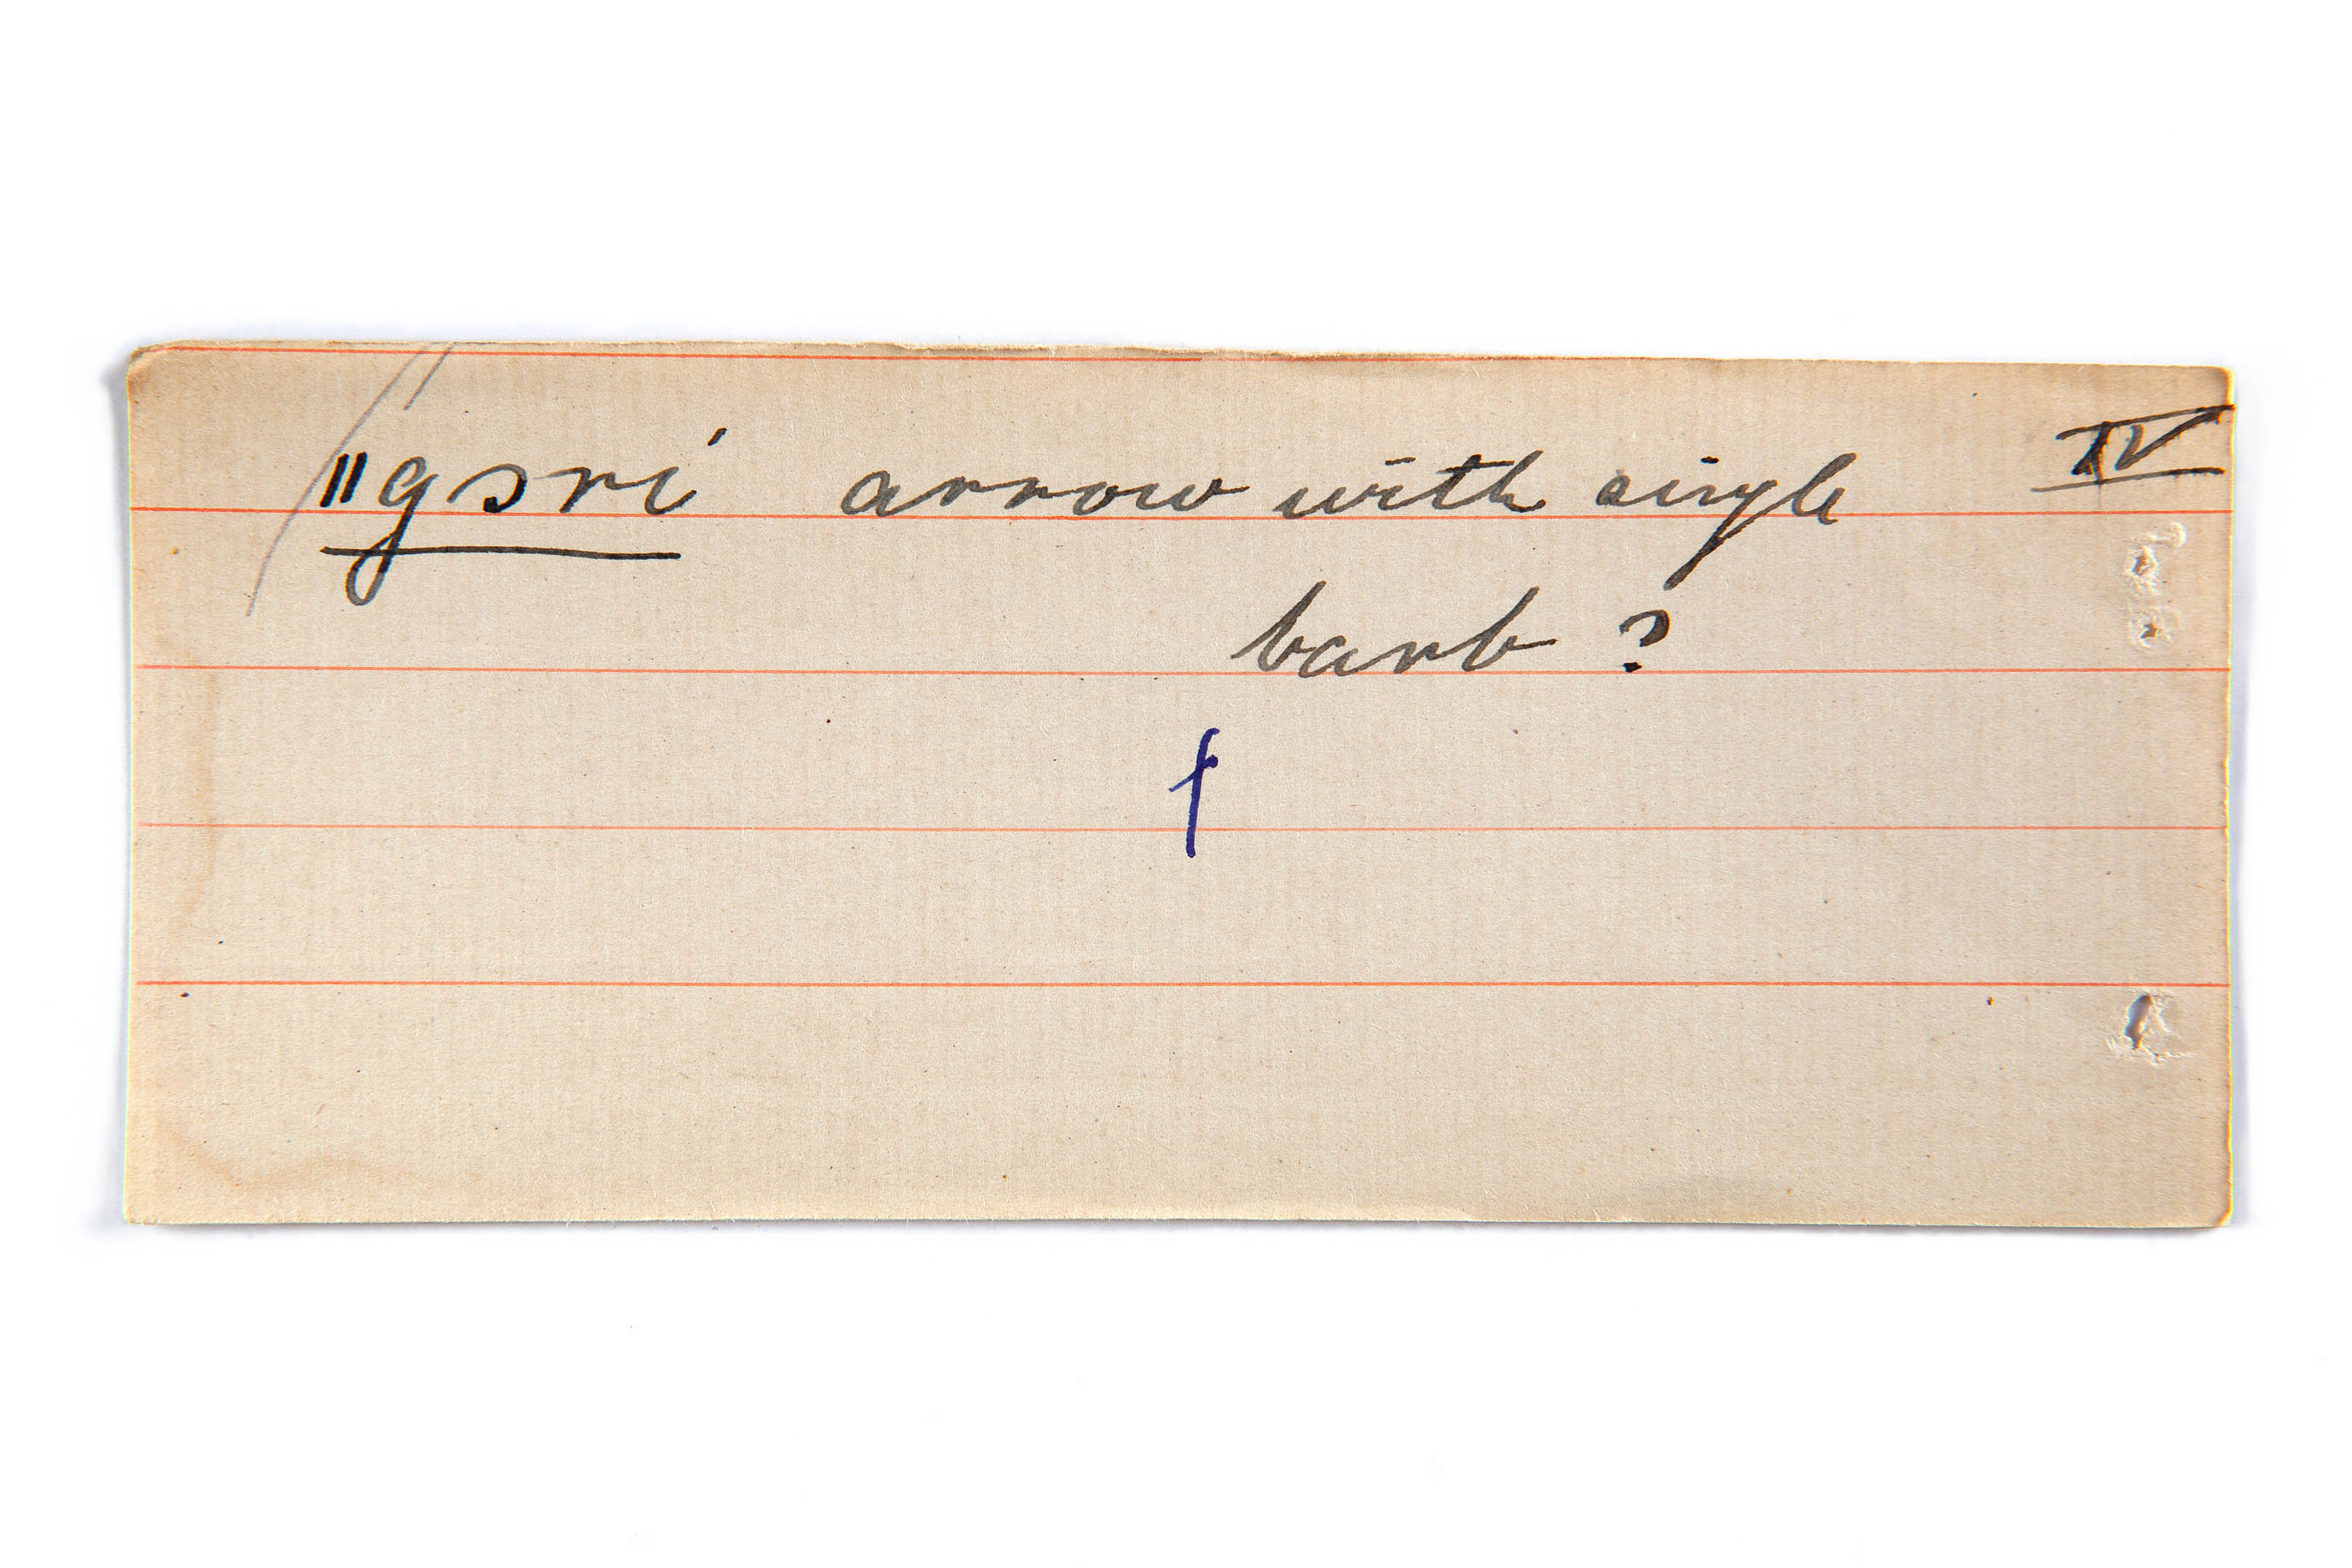 ǁgɔri arrow with single IV
barb ?
ƒ